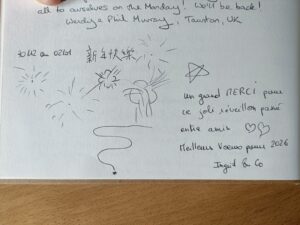 all to ourselves on the Monday! We'll be back!
Phil Murray, Taunton, UK
新年快樂
Un grand MERCI pour
ce joli réveillon passé
entre amis
Meilleurs Voeux pour 2026
Ingrid & Co